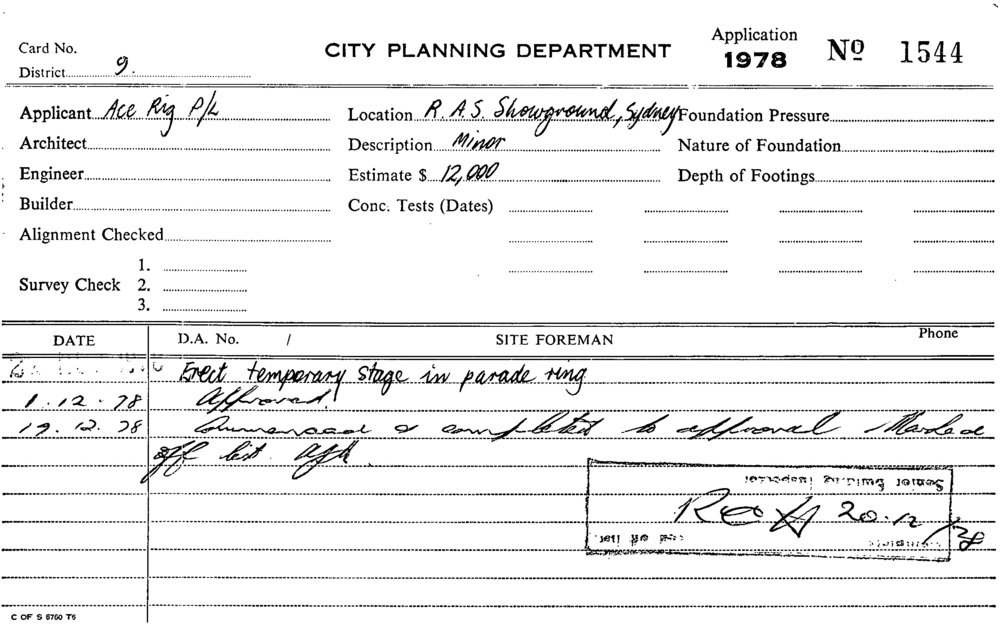 Card No.
District 9.
CITY PLANNING DEPARTMENT
Application
1978 Nº 1544
Applicant Ace Rig P/L
Location R.A.S. Showground, Sydney
Foundation Pressure
Architect
Description Minor
Nature of Foundation
Engineer
Estimate $ 12,000
Depth of Footings
Builder
Conc. Tests (Dates)
Alignment Checked
Survey Check 1.
2.
3.
DATE D.A. No. / SITE FOREMAN Phone
Erect temporary stage in parade ring
1.12.78 Approved
19.12.78 Commenced & completed to approval Marked
off list
Senior Building Inspector
20.12/78
Complete
off list.
C OF S 6760 T5